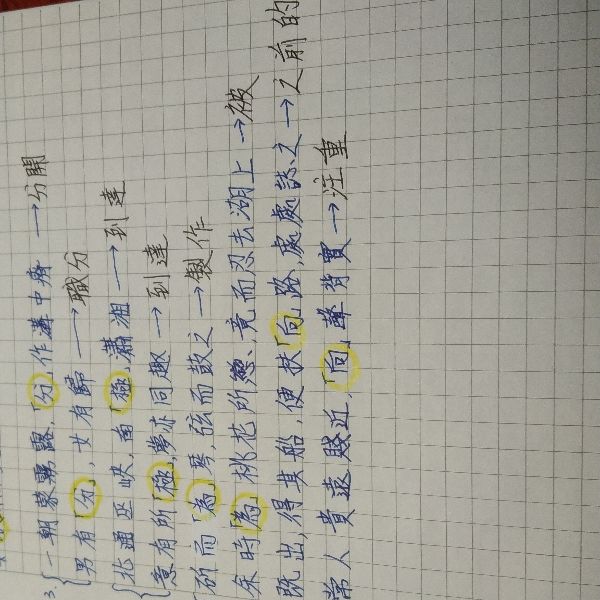 3. 一朝蒙霧露,「分」作溝中瘠 →分開
男有「分」,女有歸 →職分
北通巫峽,南「極」瀟湘 →到達
意有所「極」,夢亦同趣 →到達
斫而「為」琴,弦而鼓之 →製作
余時「為」桃花所戀,竟而忍去湖上 →被
既出,得其船,便扶「向」路,處處誌之 →之前的
常人貴遠賤近,「向」聲背實 →注重